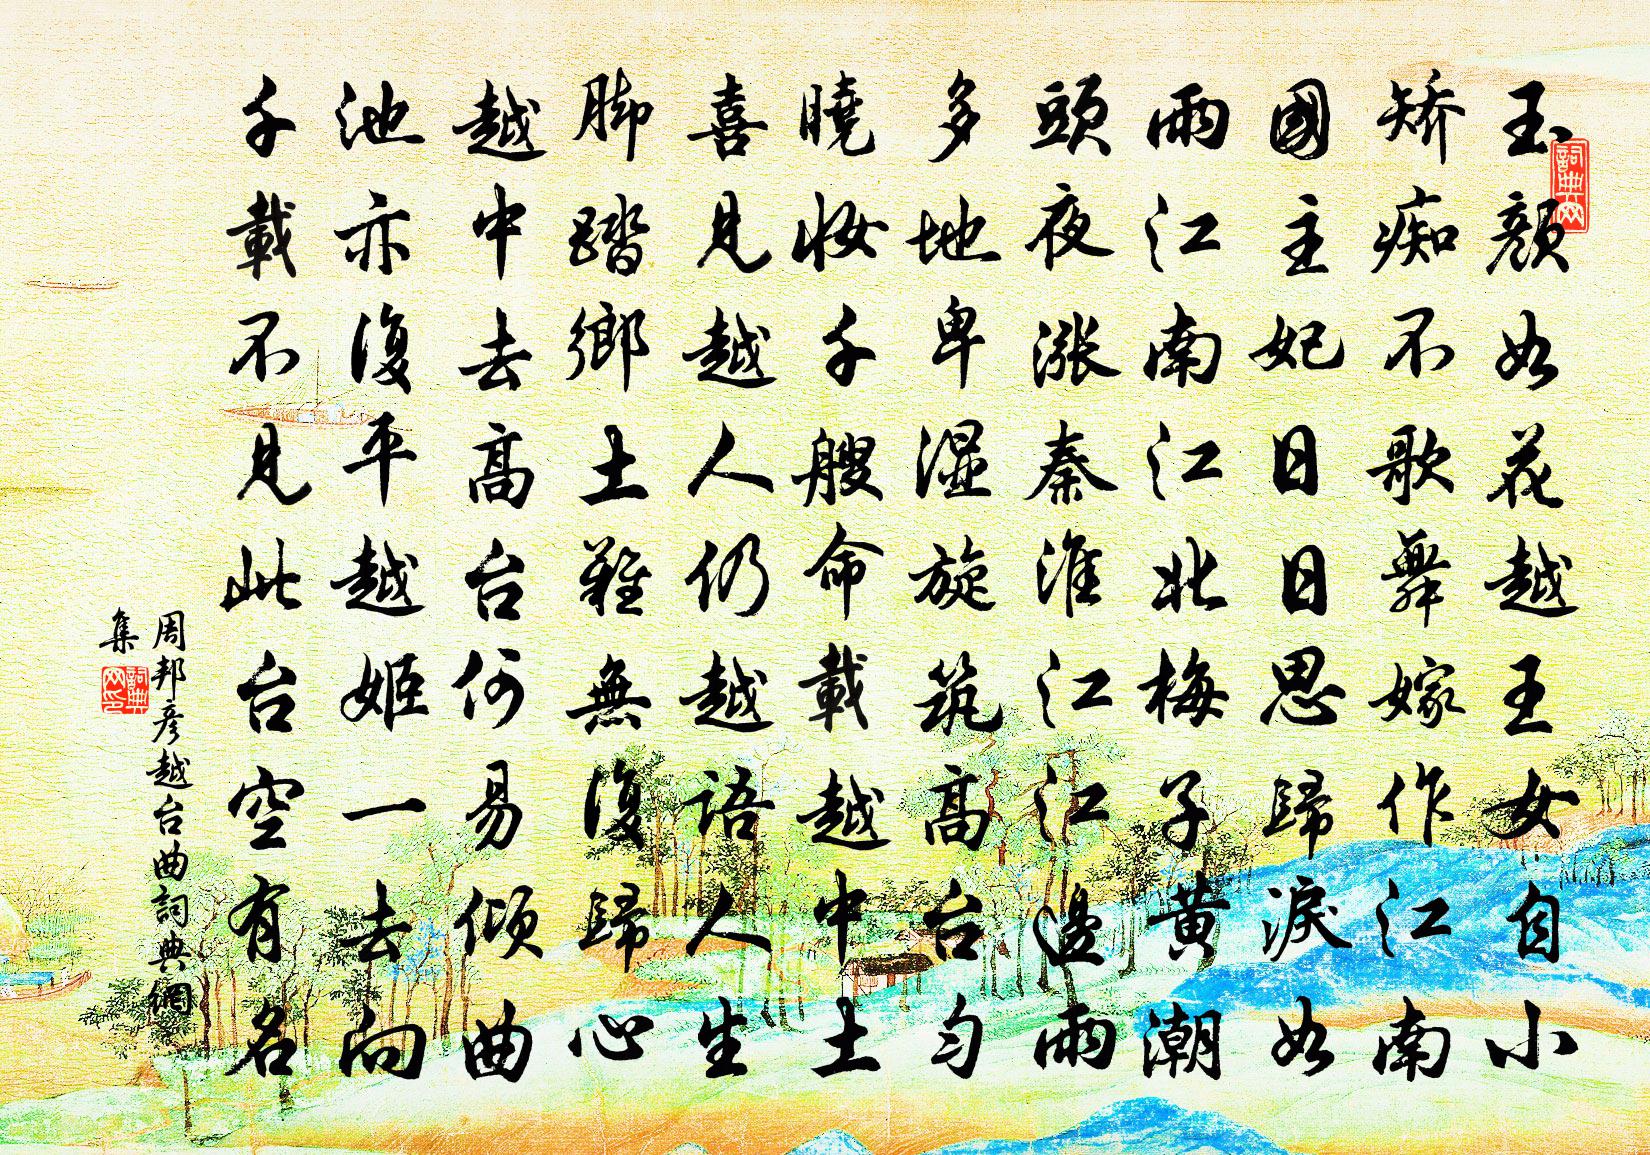 玉顏如花越王女自小
矫痴不歌舞嫁作江南
國主妃日日思歸淚如
雨江南江北梅子黃潮
頭夜漲秦淮江江邊雨
多地卑湿旋筑高台勻
曉妝千艘命載越中土
喜見越人仍越語人生
脚踏鄉土難無復歸心
越中去高台何易傾曲
池亦復平越姬一去向
千載不見此台空有名
周邦彥越台曲詞典網
集
詞典网
詞典网印